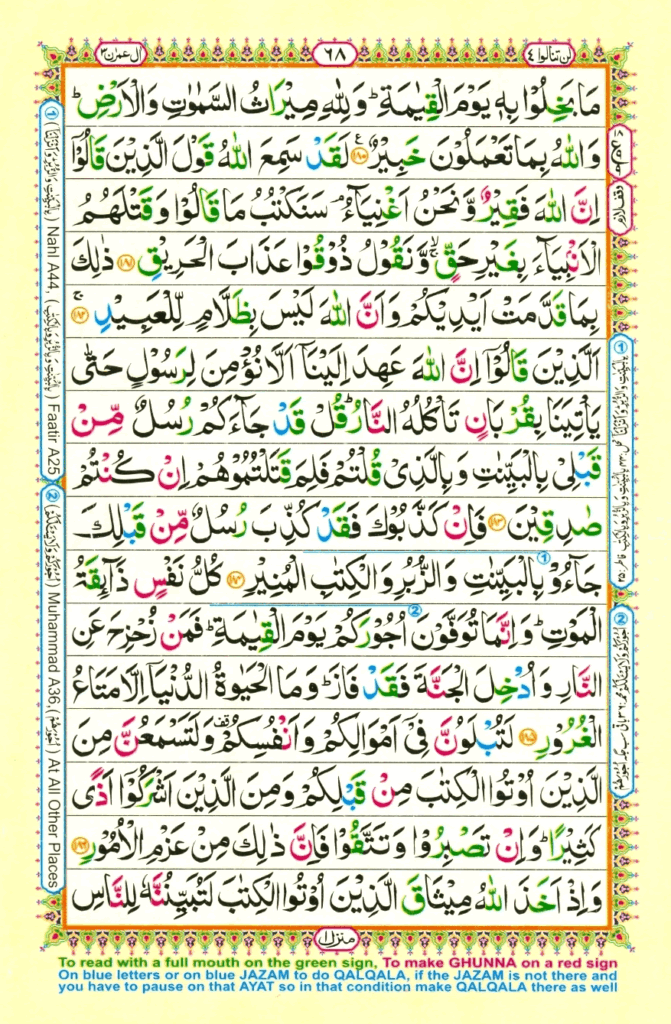 اٰل عمرٰن ٣
٦٨
لن تنالوا ٤
مَا بَخِلُوْا بِهٖ يَوْمَ الْقِيٰمَةِ ؕ وَلِلّٰهِ مِيْرَاثُ السَّمٰوٰتِ وَالْاَرْضِ ؕ
وَاللّٰهُ بِمَا تَعْمَلُوْنَ خَبِيْرٌ ﴿۱۸۰﴾ لَقَدْ سَمِعَ اللّٰهُ قَوْلَ الَّذِيْنَ قَالُوْۤا
اِنَّ اللّٰهَ فَقِيْرٌ وَّنَحْنُ اَغْنِيَآءُ ۘ سَنَكْتُبُ مَا قَالُوْا وَقَتْلَهُمُ
الْاَنْۢبِيَآءَ بِغَيْرِ حَقٍّ ۙ وَّنَقُوْلُ ذُوْقُوْا عَذَابَ الْحَرِيْقِ ﴿۱۸۱﴾ ذٰلِكَ
بِمَا قَدَّمَتْ اَيْدِيْكُمْ وَاَنَّ اللّٰهَ لَيْسَ بِظَلَّامٍ لِّلْعَبِيْدِ ﴿۱۸۲﴾ ۚ
اَلَّذِيْنَ قَالُوْۤا اِنَّ اللّٰهَ عَهِدَ اِلَيْنَاۤ اَلَّا نُؤْمِنَ لِرَسُوْلٍ حَتّٰى
يَاْتِيَنَا بِقُرْبَانٍ تَاْكُلُهُ النَّارُ ؕ قُلْ قَدْ جَآءَكُمْ رُسُلٌ مِّنْ
قَبْلِىْ بِالْبَيِّنٰتِ وَبِالَّذِىْ قُلْتُمْ فَلِمَ قَتَلْتُمُوْهُمْ اِنْ كُنْتُمْ
صٰدِقِيْنَ ﴿۱۸۳﴾ فَاِنْ كَذَّبُوْكَ فَقَدْ كُذِّبَ رُسُلٌ مِّنْ قَبْلِكَ
جَآءُوْ بِالْبَيِّنٰتِ وَالزُّبُرِ وَالْكِتٰبِ الْمُنِيْرِ ﴿۱۸۴﴾ كُلُّ نَفْسٍ ذَآئِقَةُ
الْمَوْتِ ؕ وَاِنَّمَا تُوَفَّوْنَ اُجُوْرَكُمْ يَوْمَ الْقِيٰمَةِ ؕ فَمَنْ زُحْزِحَ عَنِ
النَّارِ وَاُدْخِلَ الْجَنَّةَ فَقَدْ فَازَ ؕ وَمَا الْحَيٰوةُ الدُّنْيَاۤ اِلَّا مَتَاعُ
الْغُرُوْرِ ﴿۱۸۵﴾ لَتُبْلَوُنَّ فِىْۤ اَمْوَالِكُمْ وَاَنْفُسِكُمْ ۟ وَلَتَسْمَعُنَّ مِنَ
الَّذِيْنَ اُوْتُوا الْكِتٰبَ مِنْ قَبْلِكُمْ وَمِنَ الَّذِيْنَ اَشْرَكُوْۤا اَذًى
كَثِيْرًا ؕ وَاِنْ تَصْبِرُوْا وَتَتَّقُوْا فَاِنَّ ذٰلِكَ مِنْ عَزْمِ الْاُمُوْرِ ﴿۱۸۶﴾
وَاِذْ اَخَذَ اللّٰهُ مِيْثَاقَ الَّذِيْنَ اُوْتُوا الْكِتٰبَ لَتُبَيِّنُنَّهٗ لِلنَّاسِ
وقف لازم
① Nahl A44, Faatir A25
② Muhammad A36, At All Other Places
منزل ١
To read with a full mouth on the green sign, To make GHUNNA on a red sign
On blue letters or on blue JAZAM to do QALQALA, if the JAZAM is not there and
you have to pause on that AYAT so in that condition make QALQALA there as well